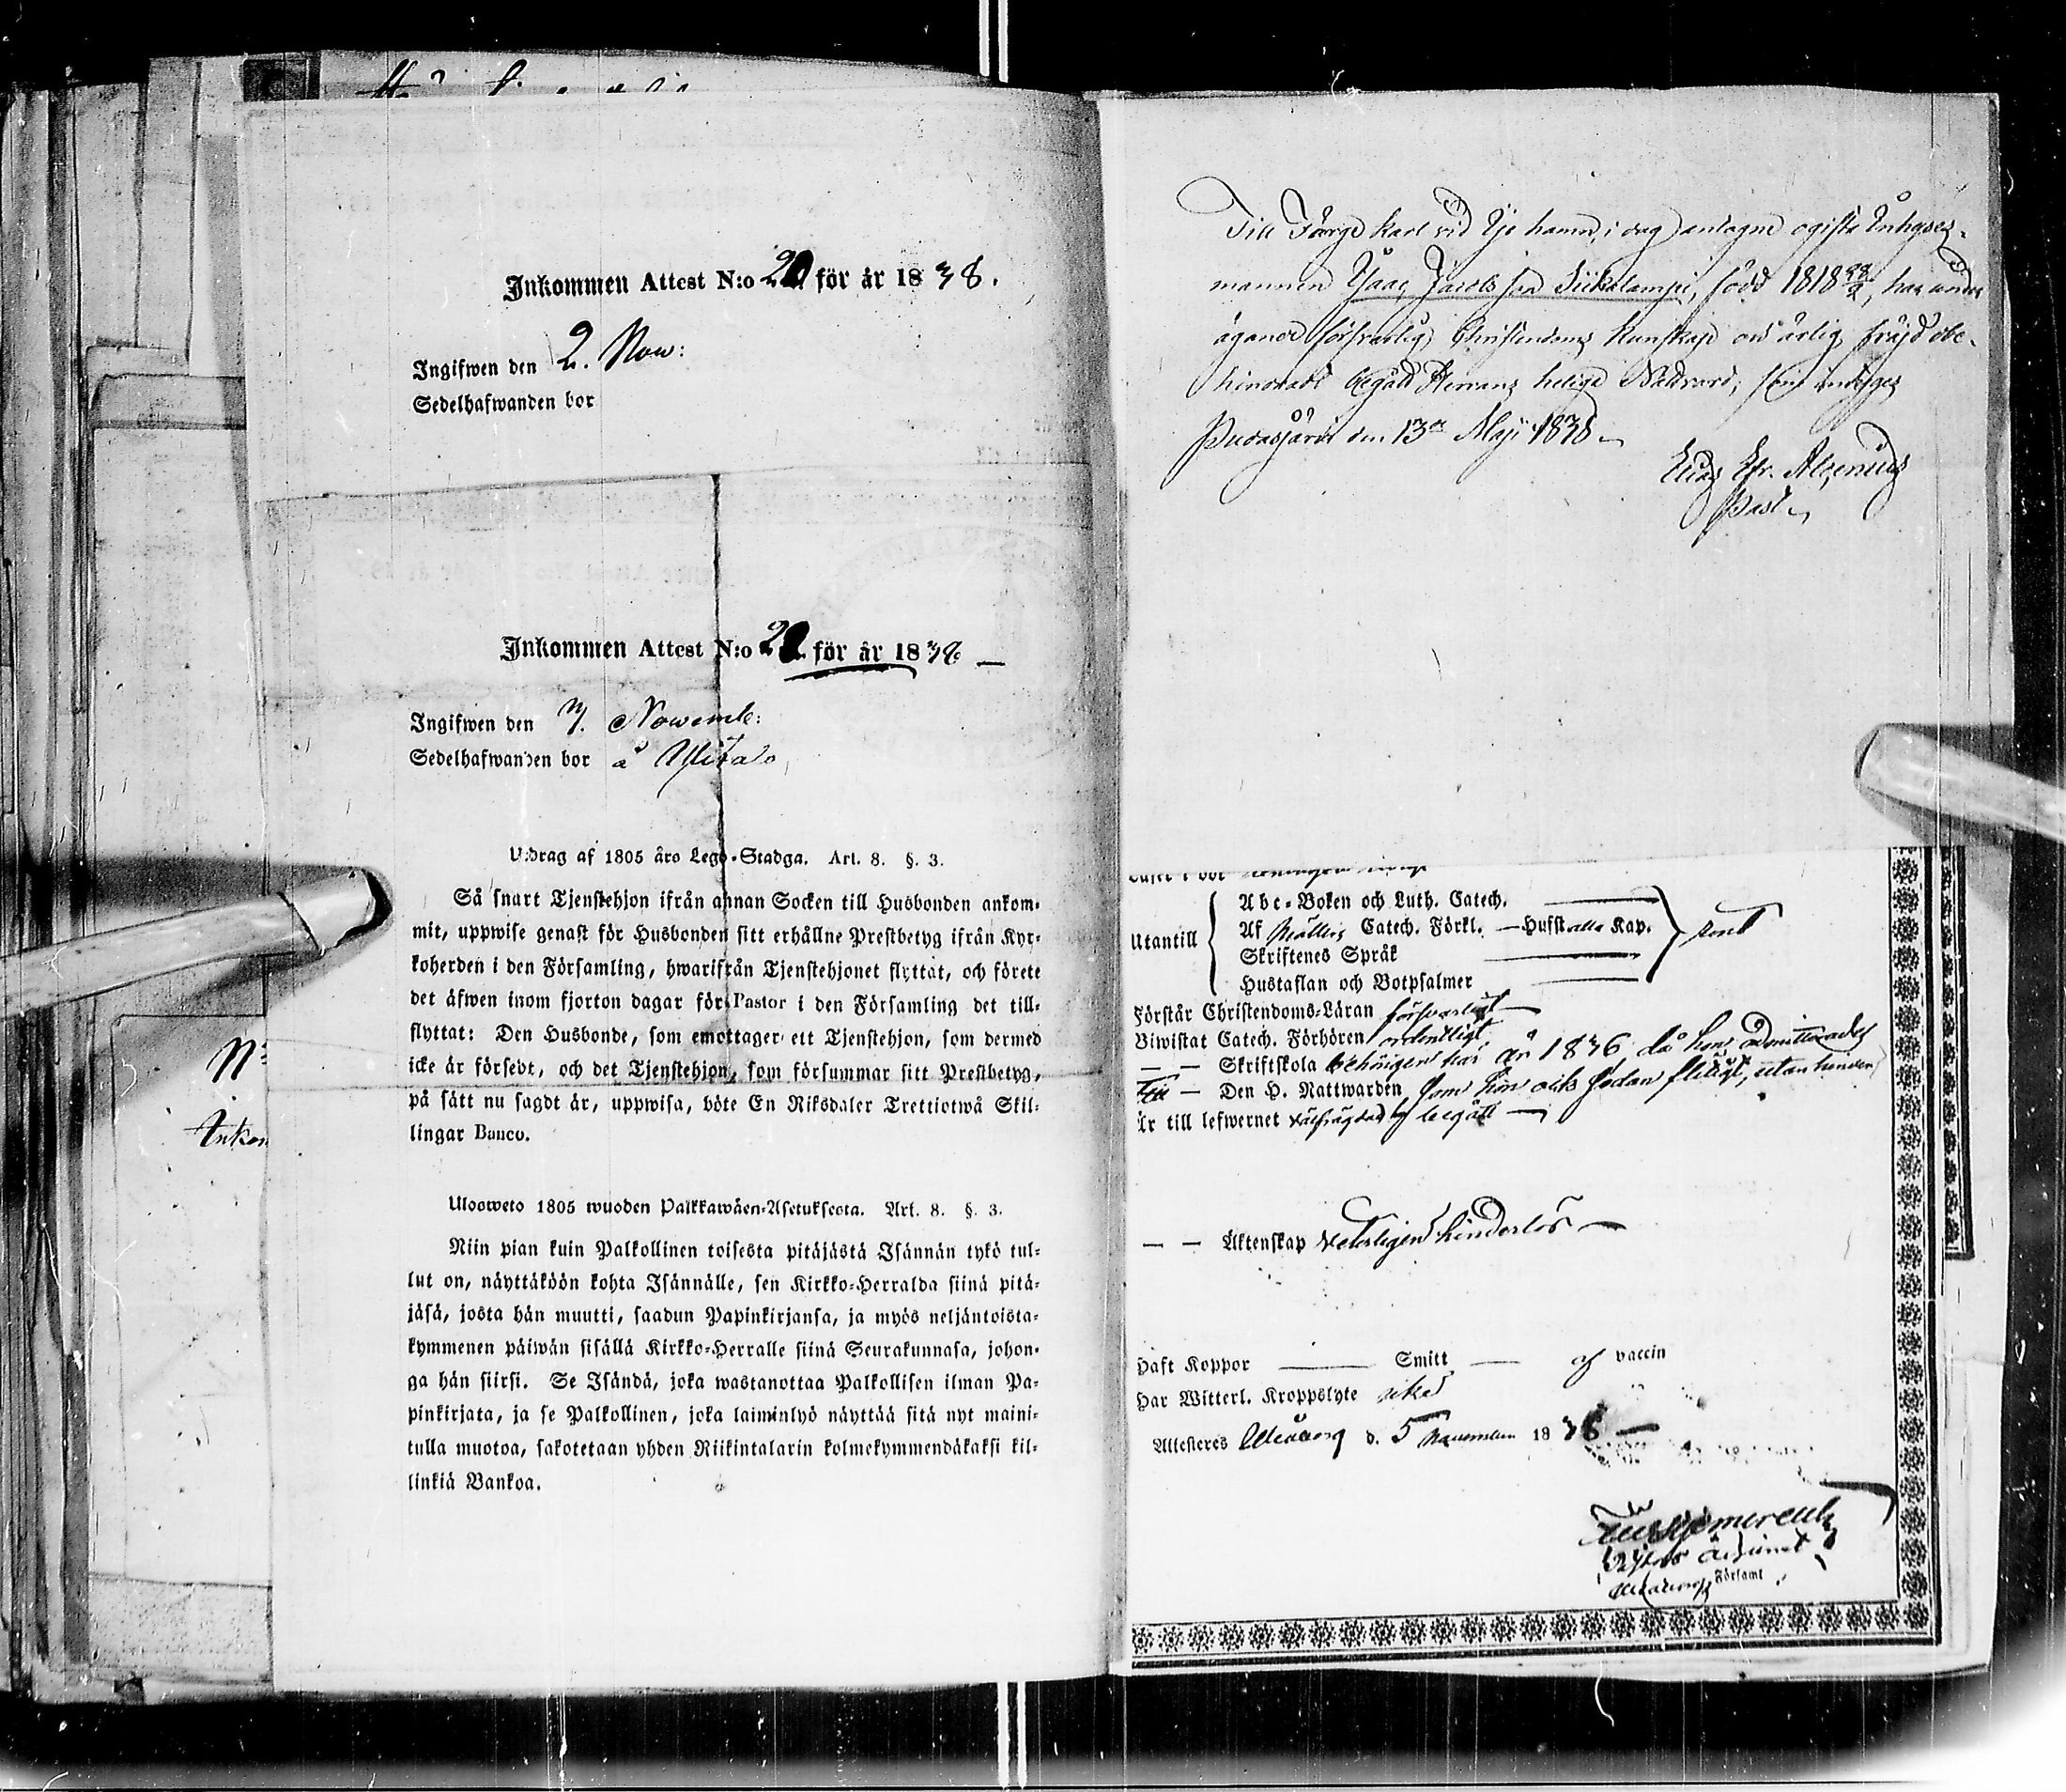 Inkommen Attest N:o 20 för år 1838.
Ingifwen den 2. Now:
Sedelhafwanden bor
Inkommen Attest N:o 22 för år 1838
Ingifwen den 7. Nowemb:
Sedelhafwanden bor å
Utdrag af 1805 års Lego-Stadga. Art. 8. §. 3.
Så snart Tjenstehjon ifrån annan Socken till Husbonden ankom-
mit, uppwise genast för Husbonden sitt erhållne Prestbetyg ifrån Kyr-
koherden i den Församling, hwarifrån Tjenstehjonet flyttat, och förete
det äfwen inom fjorton dagar för Pastor i den Församling det till-
flyttat: Den Husbonde, som emottager ett Tjenstehjon, som dermed
icke är försedt, och det Tjenstehjon, som försummar sitt Prestbetyg,
på sätt nu sagdt är, uppwisa, böte En Riksdaler Trettiotwå Skil-
lingar Banco.
Ulosweto 1805 wuoden Palkkawäen-Asetuksesta. Art. 8. §. 3.
Niin pian kuin Palkollinen toisesta pitäjästä Isännän tykö tul-
lut on, näyttäköön kohta Isännälle, sen Kirkko-Herralda siinä pitä-
jäsä, josta hän muutti, saadun Papinkirjansa, ja myös neljäntoista-
kymmenen päiwän sisällä Kirkko-Herralle siinä Seurakunnasa, johon-
ga hän siirsi. Se Isändä, joka wastanottaa Palkollisen ilman Pa-
pinkirjata, ja se Palkollinen, joka laiminlyö näyttää sitä nyt maini-
tulla muotoa, sakotetaan yhden Riikintalarin kolmekymmendäkaksi kil-
linkiä Bankoa.
Till Färge karl vid Ijo hamn, i dag antagne ogifta Ynlings-
mannen Isaac Jacobsson Siikalampi, född 1818 28/2, har under
ägande försvarlig Christendoms kunskap och ärlig frejd obe-
hindradt begått Herrans heliga Nattvard, som intygas
Pudasjärvi den 13de Maji 1838
Elias Efr. Alcenius
Past.
Utantill
Abc-Boken och Luth. Catech.
Af Möllers Catech. Förkl. — Husst alla Kap.
Skriftenes Språk
Hustaflan och Botpsalmer
Förstår Christendoms-Läran försvarligt
Biwistat Catech. Förhören ordentligt
— — Skriftskola behörigen här år 1836, då hon admitterades
Till — Den H. Nattwarden, som hon ock sedan flitigt, utan hinder,
Är till lefwernet välfrägdad begått
— — Äktenskap veterligen hinderlös
Haft Koppor — Smitt — af vaccin
Har Witterl. Kroppslyte icke
Attesteres Uleåborg d. 5 November 1838
Uleåborgs Församl